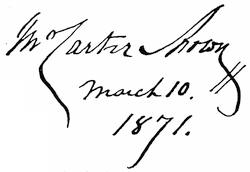 Mr Carter Brown
March 10.
1871.